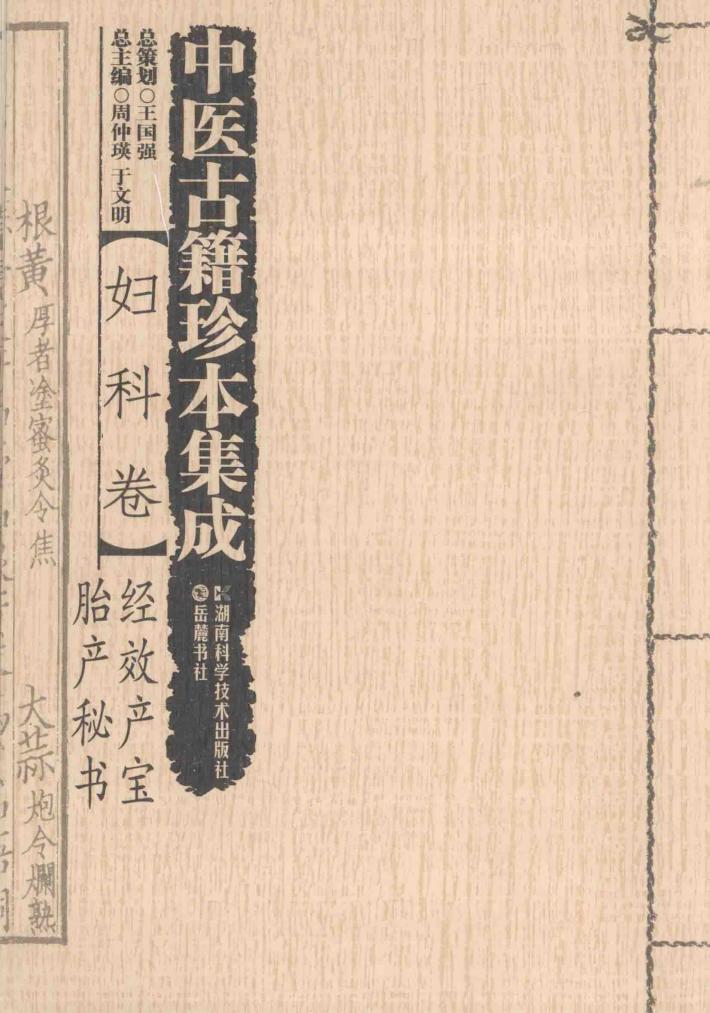 中医古籍珍本集成
湖南科学技术出版社
岳麓书社
总策划○王国强
总主编○周仲瑛 于文明
【妇科卷】
经效产宝
胎产秘书
根黄厚者塗蜜炙令焦
大蒜炮令爛熟